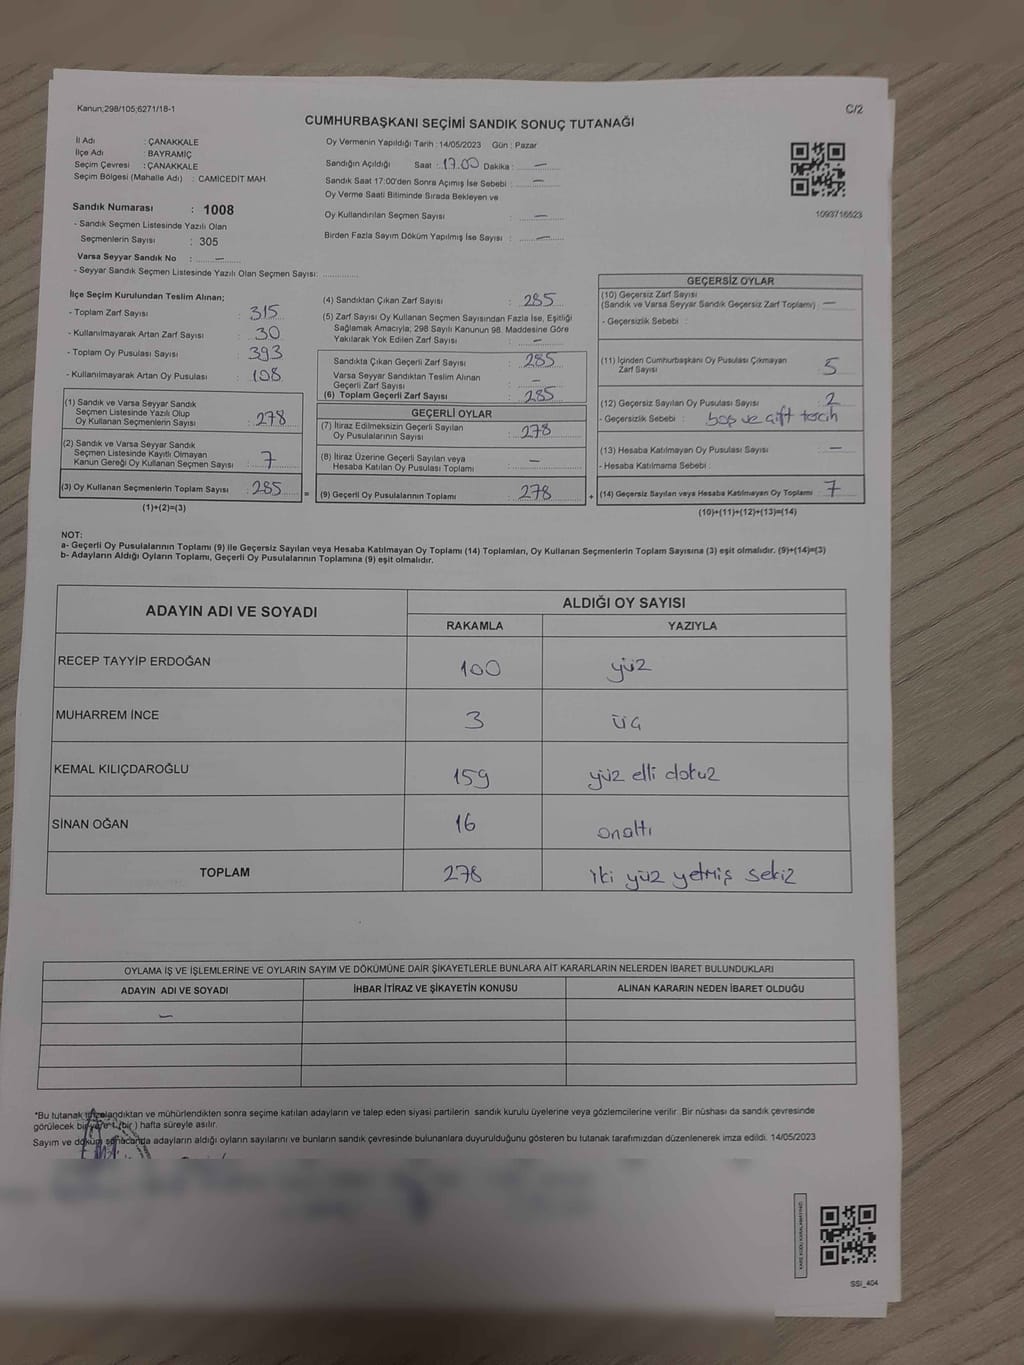 Kanun;298/105;6271/18-1
C/2
CUMHURBAŞKANI SEÇİMİ SANDIK SONUÇ TUTANAĞI
İl Adı : ÇANAKKALE
İlçe Adı : BAYRAMİÇ
Seçim Çevresi : ÇANAKKALE
Seçim Bölgesi (Mahalle Adı) : CAMİCEDİT MAH
Sandık Numarası : 1008
- Sandık Seçmen Listesinde Yazılı Olan
Seçmenlerin Sayısı : 305
Varsa Seyyar Sandık No : —
- Seyyar Sandık Seçmen Listesinde Yazılı Olan Seçmen Sayısı:
Oy Vermenin Yapıldığı Tarih :14/05/2023 Gün : Pazar
Sandığın Açıldığı Saat : 17.00 Dakika : —
Sandık Saat 17:00'den Sonra Açımış İse Sebebi : —
Oy Verme Saati Bitiminde Sırada Bekleyen ve
Oy Kullandırılan Seçmen Sayısı : —
Birden Fazla Sayım Döküm Yapılmış İse Sayısı : —
1093716523
İlçe Seçim Kurulundan Teslim Alınan;
- Toplam Zarf Sayısı : 315
- Kullanılmayarak Artan Zarf Sayısı : 30
- Toplam Oy Pusulası Sayısı : 393
- Kullanılmayarak Artan Oy Pusulası : 108
(1) Sandık ve Varsa Seyyar Sandık
Seçmen Listesinde Yazılı Olup
Oy Kullanan Seçmenlerin Sayısı : 278
(2) Sandık ve Varsa Seyyar Sandık
Seçmen Listesinde Kayıtlı Olmayan
Kanun Gereği Oy Kullanan Seçmen Sayısı : 7
(3) Oy Kullanan Seçmenlerin Toplam Sayısı : 285
(1)+(2)=(3)
=
(4) Sandıktan Çıkan Zarf Sayısı : 285
(5) Zarf Sayısı Oy Kullanan Seçmen Sayısından Fazla İse, Eşitliği
Sağlamak Amacıyla; 298 Sayılı Kanunun 98. Maddesine Göre
Yakılarak Yok Edilen Zarf Sayısı : —
Sandıkta Çıkan Geçerli Zarf Sayısı : 285
Varsa Seyyar Sandıktan Teslim Alınan
Geçerli Zarf Sayısı : —
(6) Toplam Geçerli Zarf Sayısı : 285
GEÇERLİ OYLAR
(7) İtiraz Edilmeksizin Geçerli Sayılan
Oy Pusulalarının Sayısı : 278
(8) İtiraz Üzerine Geçerli Sayılan veya
Hesaba Katılan Oy Pusulası Toplamı : —
(9) Geçerli Oy Pusulalarının Toplamı : 278
+
GEÇERSİZ OYLAR
(10) Geçersiz Zarf Sayısı
(Sandık ve Varsa Seyyar Sandık Geçersiz Zarf Toplamı) : —
- Geçersizlik Sebebi :
(11) İçinden Cumhurbaşkanı Oy Pusulası Çıkmayan
Zarf Sayısı : 5
(12) Geçersiz Sayılan Oy Pusulası Sayısı : 2
- Geçersizlik Sebebi : boş ve çift tercih
(13) Hesaba Katılmayan Oy Pusulası Sayısı : —
- Hesaba Katılmama Sebebi :
(14) Geçersiz Sayılan veya Hesaba Katılmayan Oy Toplamı : 7
(10)+(11)+(12)+(13)=(14)
NOT:
a- Geçerli Oy Pusulalarının Toplamı (9) ile Geçersiz Sayılan veya Hesaba Katılmayan Oy Toplamı (14) Toplamları, Oy Kullanan Seçmenlerin Toplam Sayısına (3) eşit olmalıdır. (9)+(14)=(3)
b- Adayların Aldığı Oyların Toplamı, Geçerli Oy Pusulalarının Toplamına (9) eşit olmalıdır.
ADAYIN ADI VE SOYADI ALDIĞI OY SAYISI
RAKAMLA YAZIYLA
RECEP TAYYİP ERDOĞAN 100 yüz
MUHARREM İNCE 3 üç
KEMAL KILIÇDAROĞLU 159 yüz elli dokuz
SİNAN OĞAN 16 onaltı
TOPLAM 278 iki yüz yetmiş sekiz
OYLAMA İŞ VE İŞLEMLERİNE VE OYLARIN SAYIM VE DÖKÜMÜNE DAİR ŞİKAYETLERLE BUNLARA AİT KARARLARIN NELERDEN İBARET BULUNDUKLARI
ADAYIN ADI VE SOYADI İHBAR İTİRAZ VE ŞİKAYETİN KONUSU ALINAN KARARIN NEDEN İBARET OLDUĞU
—
*Bu tutanak imzalandıktan ve mühürlendikten sonra seçime katılan adayların ve talep eden siyasi partilerin sandık kurulu üyelerine veya gözlemcilerine verilir. Bir nüshası da sandık çevresinde
görülecek bir yere 1 (bir) hafta süreyle asılır.
Sayım ve döküm sonucanda adayların aldığı oyların sayılarını ve bunların sandık çevresinde bulunanlara duyurulduğunu gösteren bu tutanak tarafımızdan düzenlenerek imza edildi. 14/05/2023
SSI_404